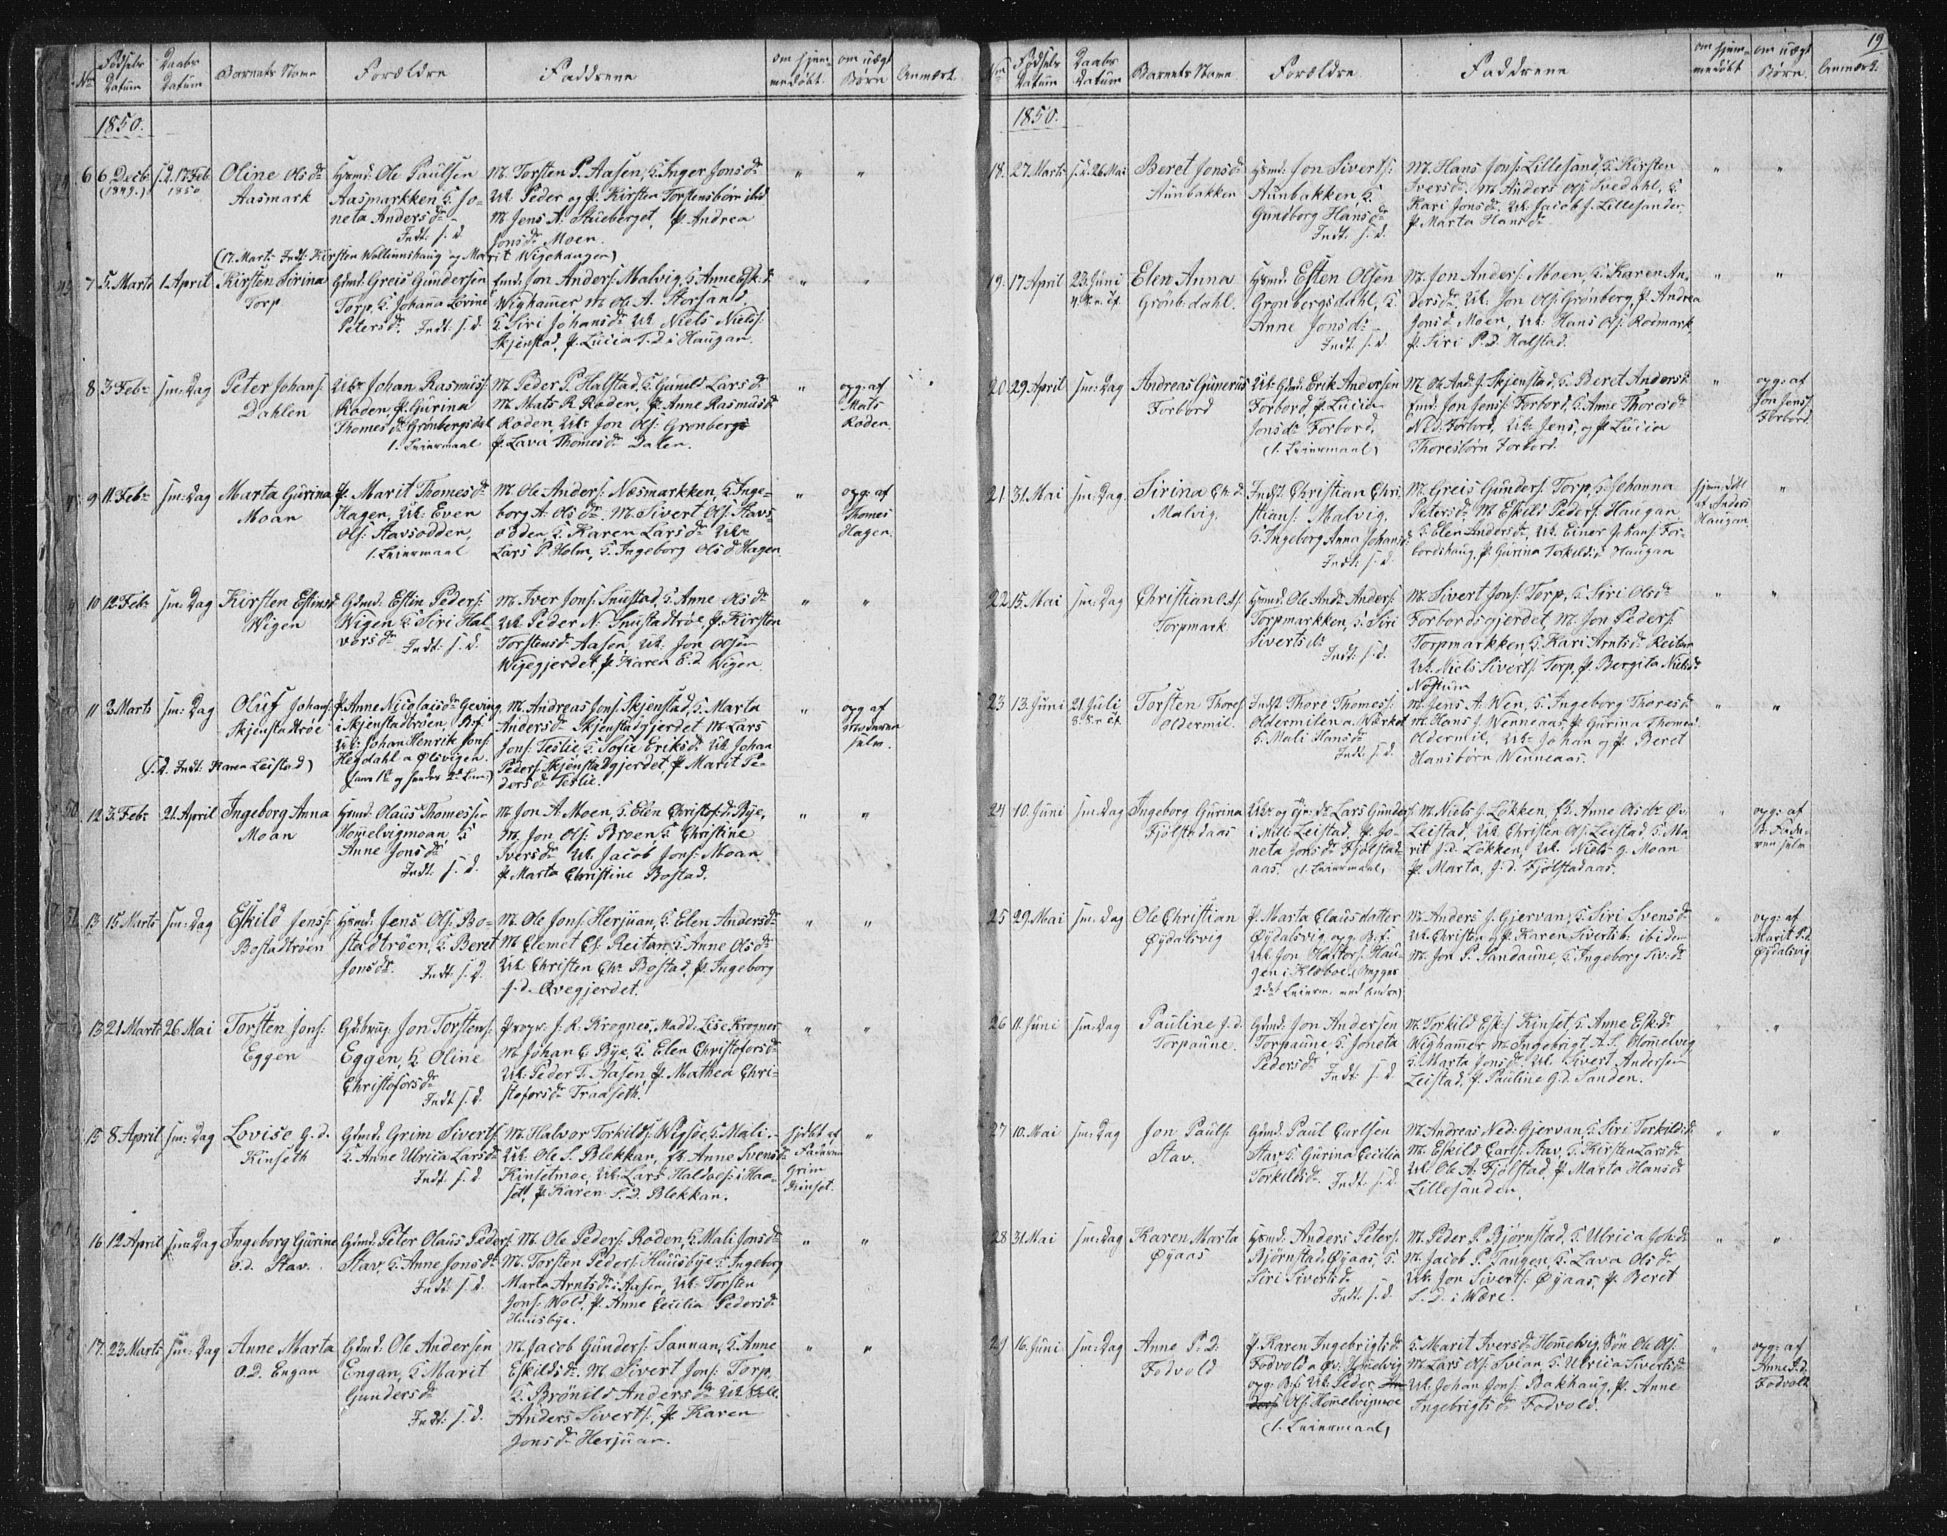 No
Fødsels Datum
Daabs Datum
Barnets Navn
Forældre
Faddrene
om hjemmedøbt
om uægte Børn
Anmærk.
1850.
6
6 Decbr (1849.)
s. d. 17 Feb 1850
Oline Olsdr
Aasmark
Hsmd: Ole Paulsen
Aasmarkken, K. Jo-
neta Andersdr
Indt. s. d.
M. Torsten P. Aasen, K. Inger Jonsdr
Uk. Peder og P. Kirsten Torstensbørn ibid
M. Jens A. Stueberget, P. Andrea
Jonsdr Moen.
(17. Marts Indt. Kirsten Wollumshaug og Marit Wigehaugen)
7
5. Marts
1 April
Kirsten Sirina
Torp
Gdmd: Greis Gundersen
Torp, K. Johana Lovine
Petersdr. Indt. s. d.
Jon Anders. Malvig, K. Anne Esk. d.
Wighamer, M. Ole A. Storsand,
K. Siri Johansdr Uk. Niels Niels:
Skjenstad, P. Lucia T. d. i Haugan.
8
3. Febr
sm: Dag
Peter Johans:
Dahlen
Uk: Johan Rasmus:
Roden, P. Gurina
Thomesdr Grønbergsdal
1. Leiermaal
M. Peder P. Halstad, K. Gunild Larsdr
M. Mats R. Roden, P. Anne Rasmusdr
Roden, Uk: Jon Ols: Grønberg
P. Lava Thomesdr Dalen.
opg: af
Mats
Roden.
9
11. Febr
sm: Dag
Marta Gurina
Moan
P. Marit Thomesdr
Hagen, Uk: Even
Ols: Stavsodden,
1. Leiermaal
M. Ole Anders: Næsmarkken, K. Inge-
borg A. Olsdr. M. Sivert Ols: Stavs-
odden, K. Karen Larsdr Uk:
Lars P. Holm, K. Ingeborg Ols d. Hagen
opg. af
Thomes
Hagen.
10
12. Febr
sm: Dag
Kirsten Estinsdr
Wigen
Gdmd: Estin Peders:
Wigen, K. Siri Hal-
vorsdr Indt. s. d.
M. Iver Jons: Snustad, K. Anne Olsdr
Uk. Peder N. Snustadtrøe, P. Kirsten
Torstensd. Aasen, Uk. Jon Olsen
Wigegjerdet, P. Karen E. d. Wigen.
11
3. Marts
sm: Dag
Oluf Johans:
Skjenstadtrøe
(s. d. Indt. Karen Leistad)
P. Anne Nicolaisdr Geving
i Skjenstadtrøen, Brf.
Uk: Johan Henrik Jons:
Hegdahl a Ølsvigen.
M. Andreas Jons: Skjenstad, K. Marta
Andersdr Skjenstadgjerdet M. Lars
Jons: Teslie, K. Sofie Eriksdr Uk Johan
Peders: Skjenstadgjerdet, P. Marit Pe-
dersdr Teslie.
opg af
Moderen
selv.
12
3. Febr
21. April
Ingeborg Anna
Moan
Hsmd: Olaus Thomes:
Homelvigmoan, K
Anne Jonsdr
Indt. s. d.
M. Jon A. Moen, K. Elen Christofd. Bye,
M. Jon Ols: Broen, K. Christine
Iversdr Uk. Jacob Jons: Moan
P. Marta Christine Bostad.
13
15 Marts
sm: Dag
Eskild Jens:
Bostadtrøen
Hsmd: Jens Ols: Bo-
stadtrøen, K. Beret
Jonsdr. Indt. s. d.
M. Ole Jons: Herjuan, K. Elen Andersdr
M. Clemet Es. Reitan, K. Anne Olsdr
Uk. Christen Chr. Bostad, P. Ingeborg
J. d. Qvegjerdet.
13
21 Marts
26 Mai
Torsten Jons:
Eggen
Gdbrug: Jon Torstens:
Eggen, K. Oline
Christoforsdr
Indt. s. d.
Propr. J. R. Krognes, Madd. Lise Krognes
M. Johan C. Bye, K. Elen Christoforsdr
Uk: Peder T. Aasen, P. Mathea Chri-
stoforsdr Traaseth.
15
8. April
sm: Dag
Lovise G. d.
Kinseth
Gdmd: Grim Siverts:
K. Anne Ulrica Larsdr
Indt. s. d.
M. Halvor Torkilds: Wigsøe, K. Mali
Uk. Ole S. Blekkan, Anne Svensdr
Kinsetmoe, Uk: Lars Haldos: i Haa-
set, P. Karen S. d. Blekkan.
hjdbt af
Faderen
Grim
Kinset.
16
12 April
sm: Dag
Ingeborg Gurine
P. d. Stav.
Gdmd: Peter Olaus Peders:
Stav, K. Anne Jonsdr
Indt. s. d.
M. Ole Peders: Roden, K. Mali Jonsdr
M. Torsten Peders: Huusbye, K. Ingeborg
Marta Arntsdr i Aasen, Uk. Torsten
Jons: Wold, P. Anne Cecilia Pedersdr
Huusbye.
17.
23 Marts
sm: Dag
Anne Marta
O. d. Engan
Gdmd: Ole Andersen
Engan, K. Marit
Gundersdr
Indt. s. d.
M. Jacob Gunders: Sannan, K. Anne
Eskildsdr. M. Sivert Jons: Torp,
K. Brønild Andersdr Uk.
Anders Siverts:, P. Karen
Jonsdr Herjuan.
19
No
Fødsels Datum
Daabs Datum
Barnets Navn
Forældre
Faddrene
om hjemmedøbt
om uægte Børn
Anmærk.
1850.
18.
27. Marts
s. d. 26. Mai
Beret Jonsdr
Aunbakken
Hsmd: Jon Siverts:
Aunbakken, K.
Gundborg Hansdr
Indt. s. d.
M. Hans Jons: Lillesand, K. Kirsten
Iversdr. M. Anders Ols: Svedahl, K.
Kari Jonsdr. Uk: Jacob J. Lillesanden,
P. Marta Hansdr
19.
17 April
23. Juni
Elen Anna
Grønb:dahl.
Hsmd: Esten Olsen
Grønbergsdahl, K.
Anne Jonsdr
Indt. s. d.
M. Jon Anders: Moen, K. Karen An-
dersdr, Uk: Jon Ols: Grønberg, P. Andrea
Jonsd. Moen, Uk: Hans Ols: Rodmark
P. Siri P. d. Halstad.
20
29 April
sm: Dag
Andreas Gunerius
Forbord
Uk: Gdmd: Erik Andersen
Forbord, P. Lucia
Jonsdr Forbord,
(1. Leiermaal)
M. Ole And: J. Skjenstad, K. Beret Andersd.
Jon Jons: Forbord, K. Anne Thoresdr
Ned: Forbord, Uk: Jens, og P. Lucia
Thoresbørn Forbord.
opg: af
Jon Jons:
Forbord
21.
31. Mai
sm: Dag.
Sirina Ch. d.
Malvig.
Indt. Christian Chri-
stians: Malvig.
K. Ingeborg Anna Johansd.
Indt. s. d.
M. Greis Gunders: Torp, K. Johanna
Petersdr M. Eskild Peders: Haugan
K. Elen Andersdr, Uk. Einer Johans: For-
bordshaug, P. Gurina Torkilds: i Haugan
hjem: døbt
af Peders
Haugan.
22
15. Mai
sm: Dag
Christian Ols:
Torpmark.
Hsmd: Ole Andr. Anders:
Torpmarkken, K. Siri
Sivertsdr Indt. s. d.
M. Sivert Jons: Torp, K. Siri Olsdr
Forbordsgjerdet, M. Jon Peders:
Torpmarkken, K. Kari Arntsdr Reitan
Uk. Niels Siverts: Torp, P. Bergita Nielsdr
Nostum
23
13. Juni
21 Juli
Torsten Thores:
Oldermil.
Indt. Thore Thomes:
Oldermilen a. Værket
K. Mali Hansdr
Indt. s. d.
M. Jens A. Wen, K. Ingeborg Thoresdr
M. Hans J. Wenneaas, P. Gurina Thomesd.
Oldermil, Uk: Johan og P. Beret
Hansbørn Wenneaas.
24
10. Juni
sm: Dag
Ingeborg Gurina
Fjølstadaas
Uk: og Lars Gunders:
i Mell: Leistad, P. Jo-
neta Jonsdr Fjølstad-
aas. (1. Leiermaal)
M. Niels J. Løkken, Anne Olsdr Øv.
Leistad, Uk. Christen Ols: Leistad, K. Ma-
rit J. d. Løkken, Uk. Niels G. Moan
P. Marta J. d. Fjølstadaas.
opg: af
Fade-
ren selv
25
29. Mai
sm: Dag
Ole Christian
Øydalsvig
P. Marta Clausdatter
Øydalsvig opg. Brf:
Uk. Jon Olafsters: Hau-
gen i Klæboe.
M. Anders J. Gjervan, K. Siri Svensdr
Uk. Christen og P. Karen Sivertsb: ibidem
M. Jon P. Sandaune, K. Ingeborg Siv:dr
opg: af
Marit P. d.
Øydalsvig
26
11. Juni
sm: Dag
Pauline J. d.
Torpaune.
Gdmd: Jon Andersen
Torpaune, K. Joneta
Pedersdr Indt. s. d.
M. Torkild Esk: Kinset, K. Anne Esk:dr
Wighamer, M. Ingebrigt A. S. Homelvig
K. Marta Jonsdr Uk. Sivert Andersen
Leistad, P. Pauline G. d. Sanden.
27
10. Mai
sm: Dag
Jon Pauls:
Stav.
Gdmd: Paul Carlsen
Stav, K. Gurina Cecilia
Torkildsdr. Indt. s. d.
M. Andreas Ned: Gjervan, K. Siri Torkilds:dr
M. Eskild Carls: Stav, K. Kirsten Larsdr
Uk. Ole A. Fjølstad, P. Marta Hansdr
Lillesanden.
28
31. Mai
sm: Dag
Karen Marta
Øyaas
Hsmd: Anders Peters:
Bjørnstad Øyaas, K.
Siri Sivertsdr
Indt. s. d.
M. Peder P. Bjørnstad, K. Ulrica Joh:dr
M. Jacob P. Tangen, K. Lava Olsdr
Uk. Jon Siverts: Øyaas, P. Beret
S. d. i Være.
29
16. Juni
sm: Dag
Anne P. d.
Fodvold
P. Karen Ingebrigtsdr
Fodvold a Øv: Homelvig
opg: Brf: Uk. Peder
Ols: Homelvigmoe
(1. Leiermaal)
K. Marit Iversdr Homelvig, Søn Ole Ols:
M. Lars Ols: Svian, K. Ulrica Sivertsdr
Uk. Johan Jons: Bakhaug, P. Anne
Ingebrigtsdr Fodvold.
opg: af
Anne I. d.
Fodvold